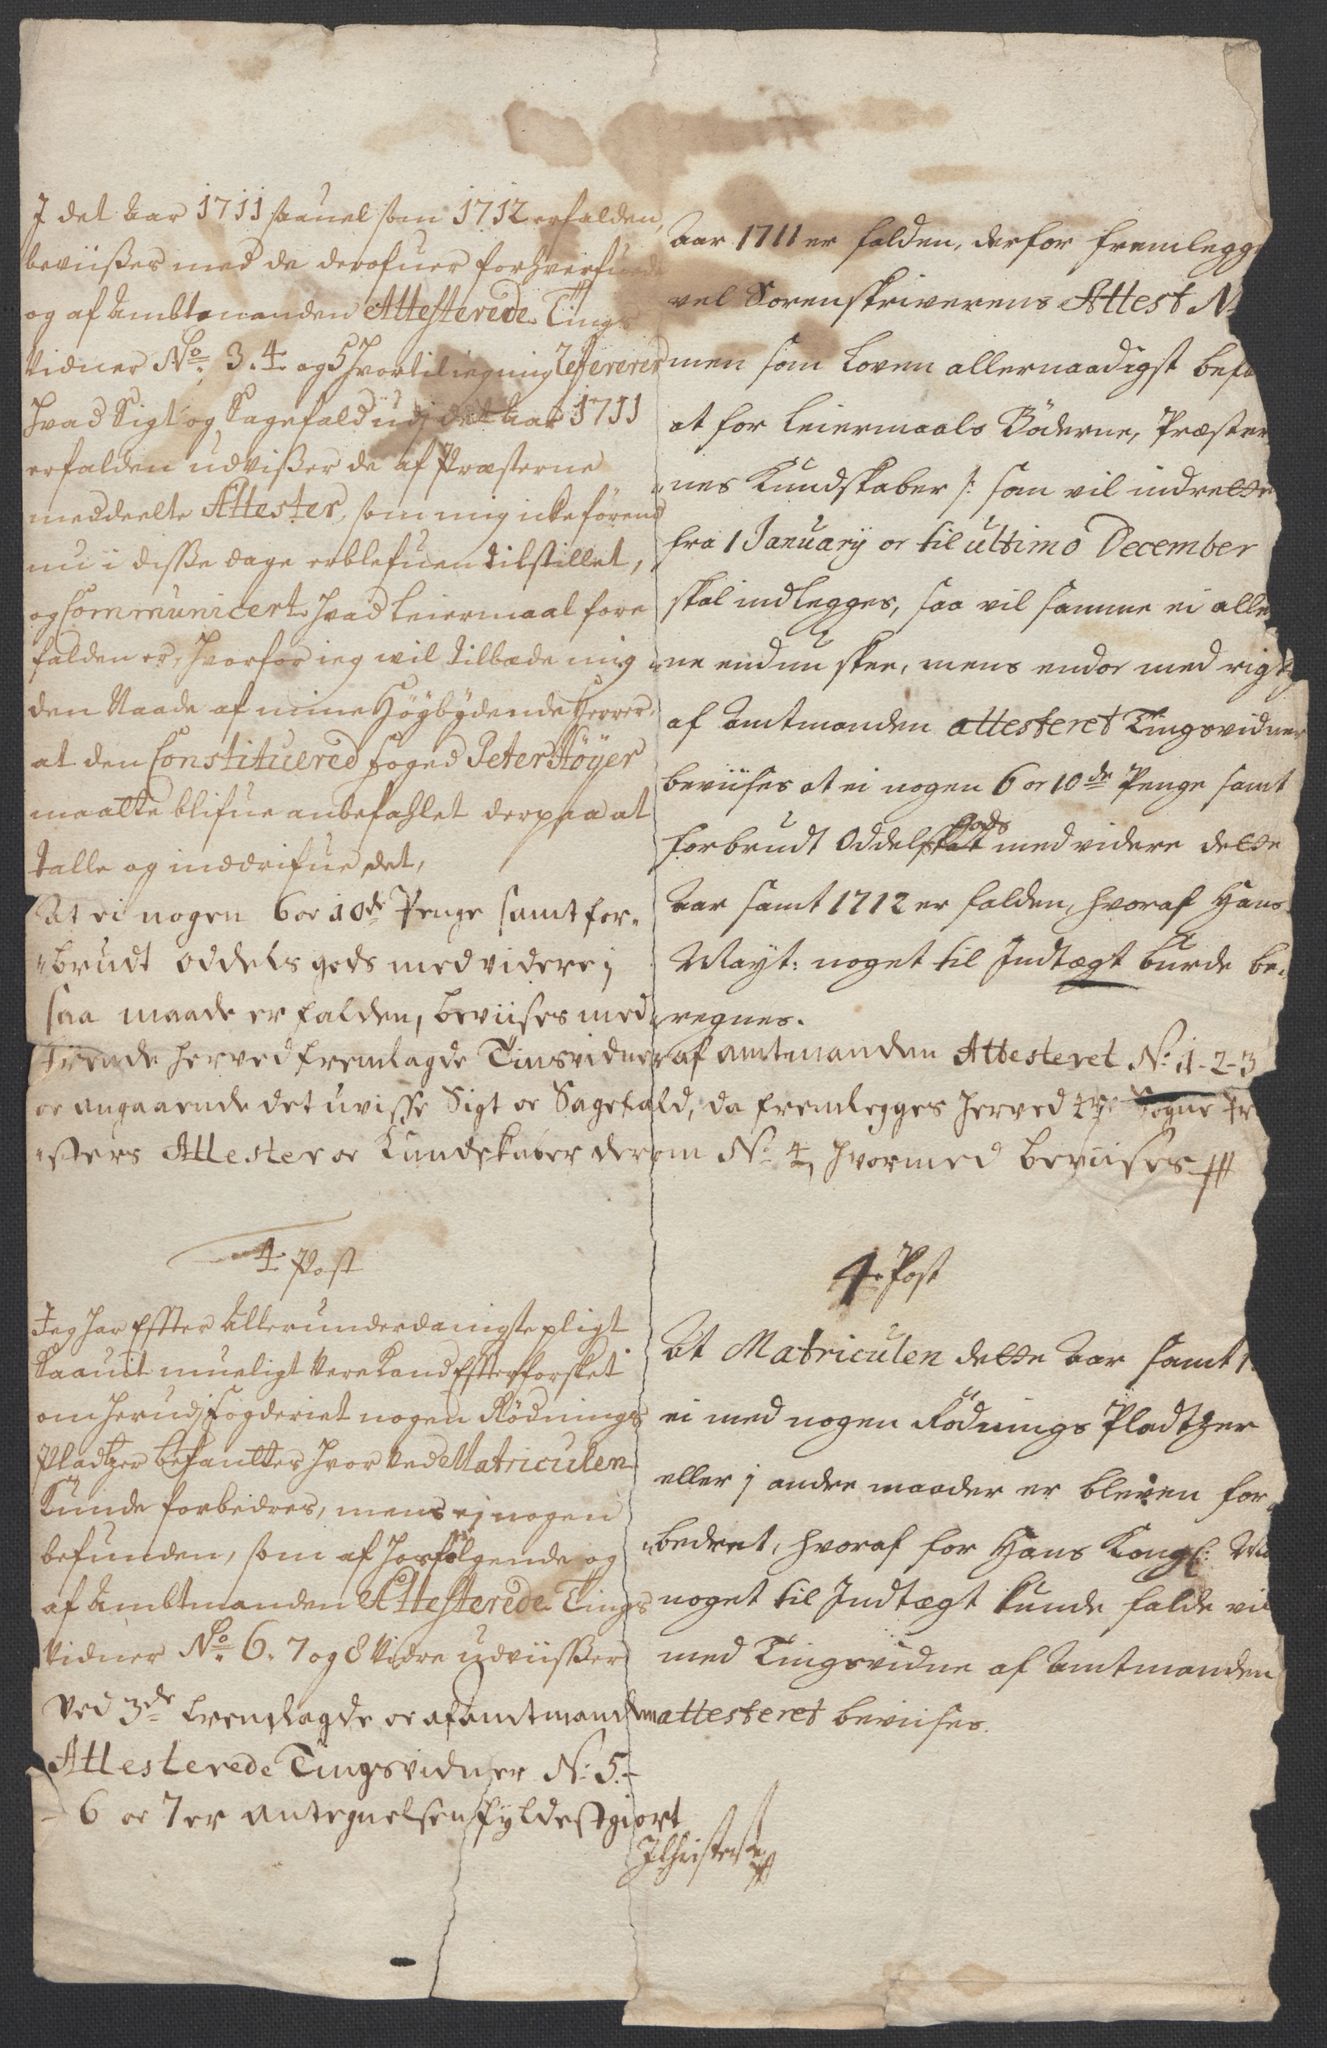 I det Aar 1711 saauel som 1712 erfalden,
beviißes med de derofuer forhverfuede
og af Ambtmanden Attesterede Tings
vidner No. 3. 4 og 5 Hvortil ieg mig Refererer
Hvad Sigt og Sagefald udj det Aar 1711
erfalden udvißer de af Præsterne
meddeelte Attester, som mig icke førend
nu i disße dage er blefuen tilstillet,
og Communicert. Hvad Leiermaal fore
falden er, Hvorfor ieg vil tilbæde mig
den Naade af mine Høygbydende Herrer,
at den Constituered Foged Peter Høyer
maatte blifue anbefahlet derpaa at
talle og inddrifue det,
At ei nogen 6 oc 10de Penge samt for-
-brudt Oddels gods med videre j
saa maade er falden, beviises med
Trende herved fremlagde Tinsvidner af Amtmanden Attesteret No: 1-2-3
oc angaaende det uvisse Sigt oc Sagefald, da fremlegges herved Sogne Pr
-sters Attester oc Kundskaber derom No: 4, hvormed beviises
4. Post
Jeg har Effter Allerunderdanigste pligt
Saauit mueligt vere kand Efterforsket
om herudj fogderiet nogen Rødnings
Pladtzer befantes Hvor ved Matriculen
Kunde forbedres, mens ej nogen
befunden, som af Hosfølgende og
af Ambtmanden Attesterede Tings
vidner No. 6. 7 og 8 vidre udviißer
Ved 3de fremlagde oc af Amtmanden
Attesterede Tingsvidner No: 5.-
- 6 oc 7 er Antegnelsen fyldestgiort
Aar 1711 er falden, derfor fremlegges
vel Sorenskriverens Attest N
men som Loven allernaadigst befa
at for Leiermaals Bøderne, Præster
-nes Kundskaber /: som vil indrettes
fra 1 Januarij oc til ultimo December
skal indlegges, saa vil samme ei alle
-ne endnu skee, mens endoc med rigt
af Amtmanden attesteret Tingsvidner
beviises at ei nogen 6 oc 10de Penge samt
forbrudt Oddels gods med videre dette
Aar samt 1712 er falden, hvoraf Hans
Mayt: noget til Indtægt burde be-
-regnes.
4. Post
At Matriculen dette Aar samt 1
ei med nogen Rødnings Pladtzer
eller j andre maader er bleven for-
-bedret, hvoraf for Hans Kongl: Ma
noget til Indtægt kunde falde vil
med Tingsvidne af Amtmanden
attesteret bevises.